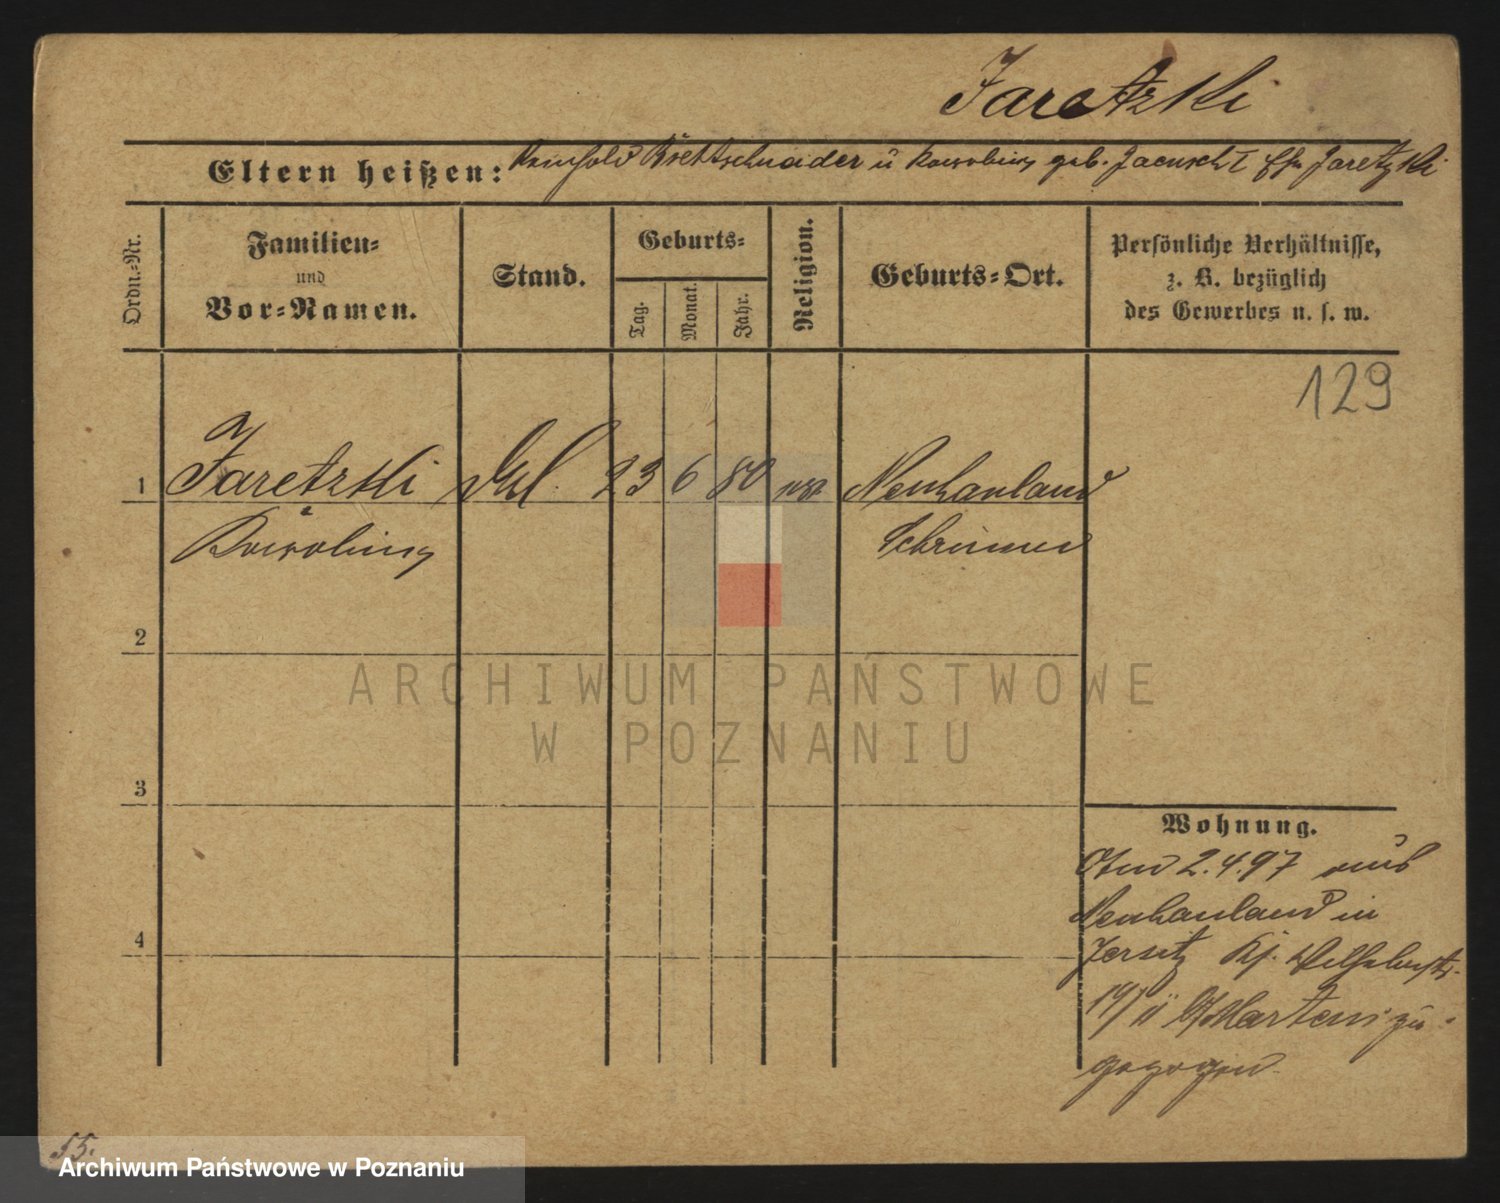 Jaretzki
Eltern heißen: Reinhold Brettschneider u geb. Jaretzki
Ordn.-Nr.
Familien-
und
Vor-Namen.
Stand.
Geburts-
Tag.
Monat.
Jahr.
Religion.
Geburts-Ort.
Persönliche Verhältnisse,
z. B. bezüglich
des Gewerbes u. s. w.
129
1 Jaretzki 23 6 80 Neuhauland
Schrimm
2
3
4
Wohnung.
2.4.97 aus
Neuhauland in
Jersitz
19/II Martens zu-
gezogen
55.
ARCHIWUM PAŃSTWOWE
W POZNANIU
Archiwum Państwowe w Poznaniu